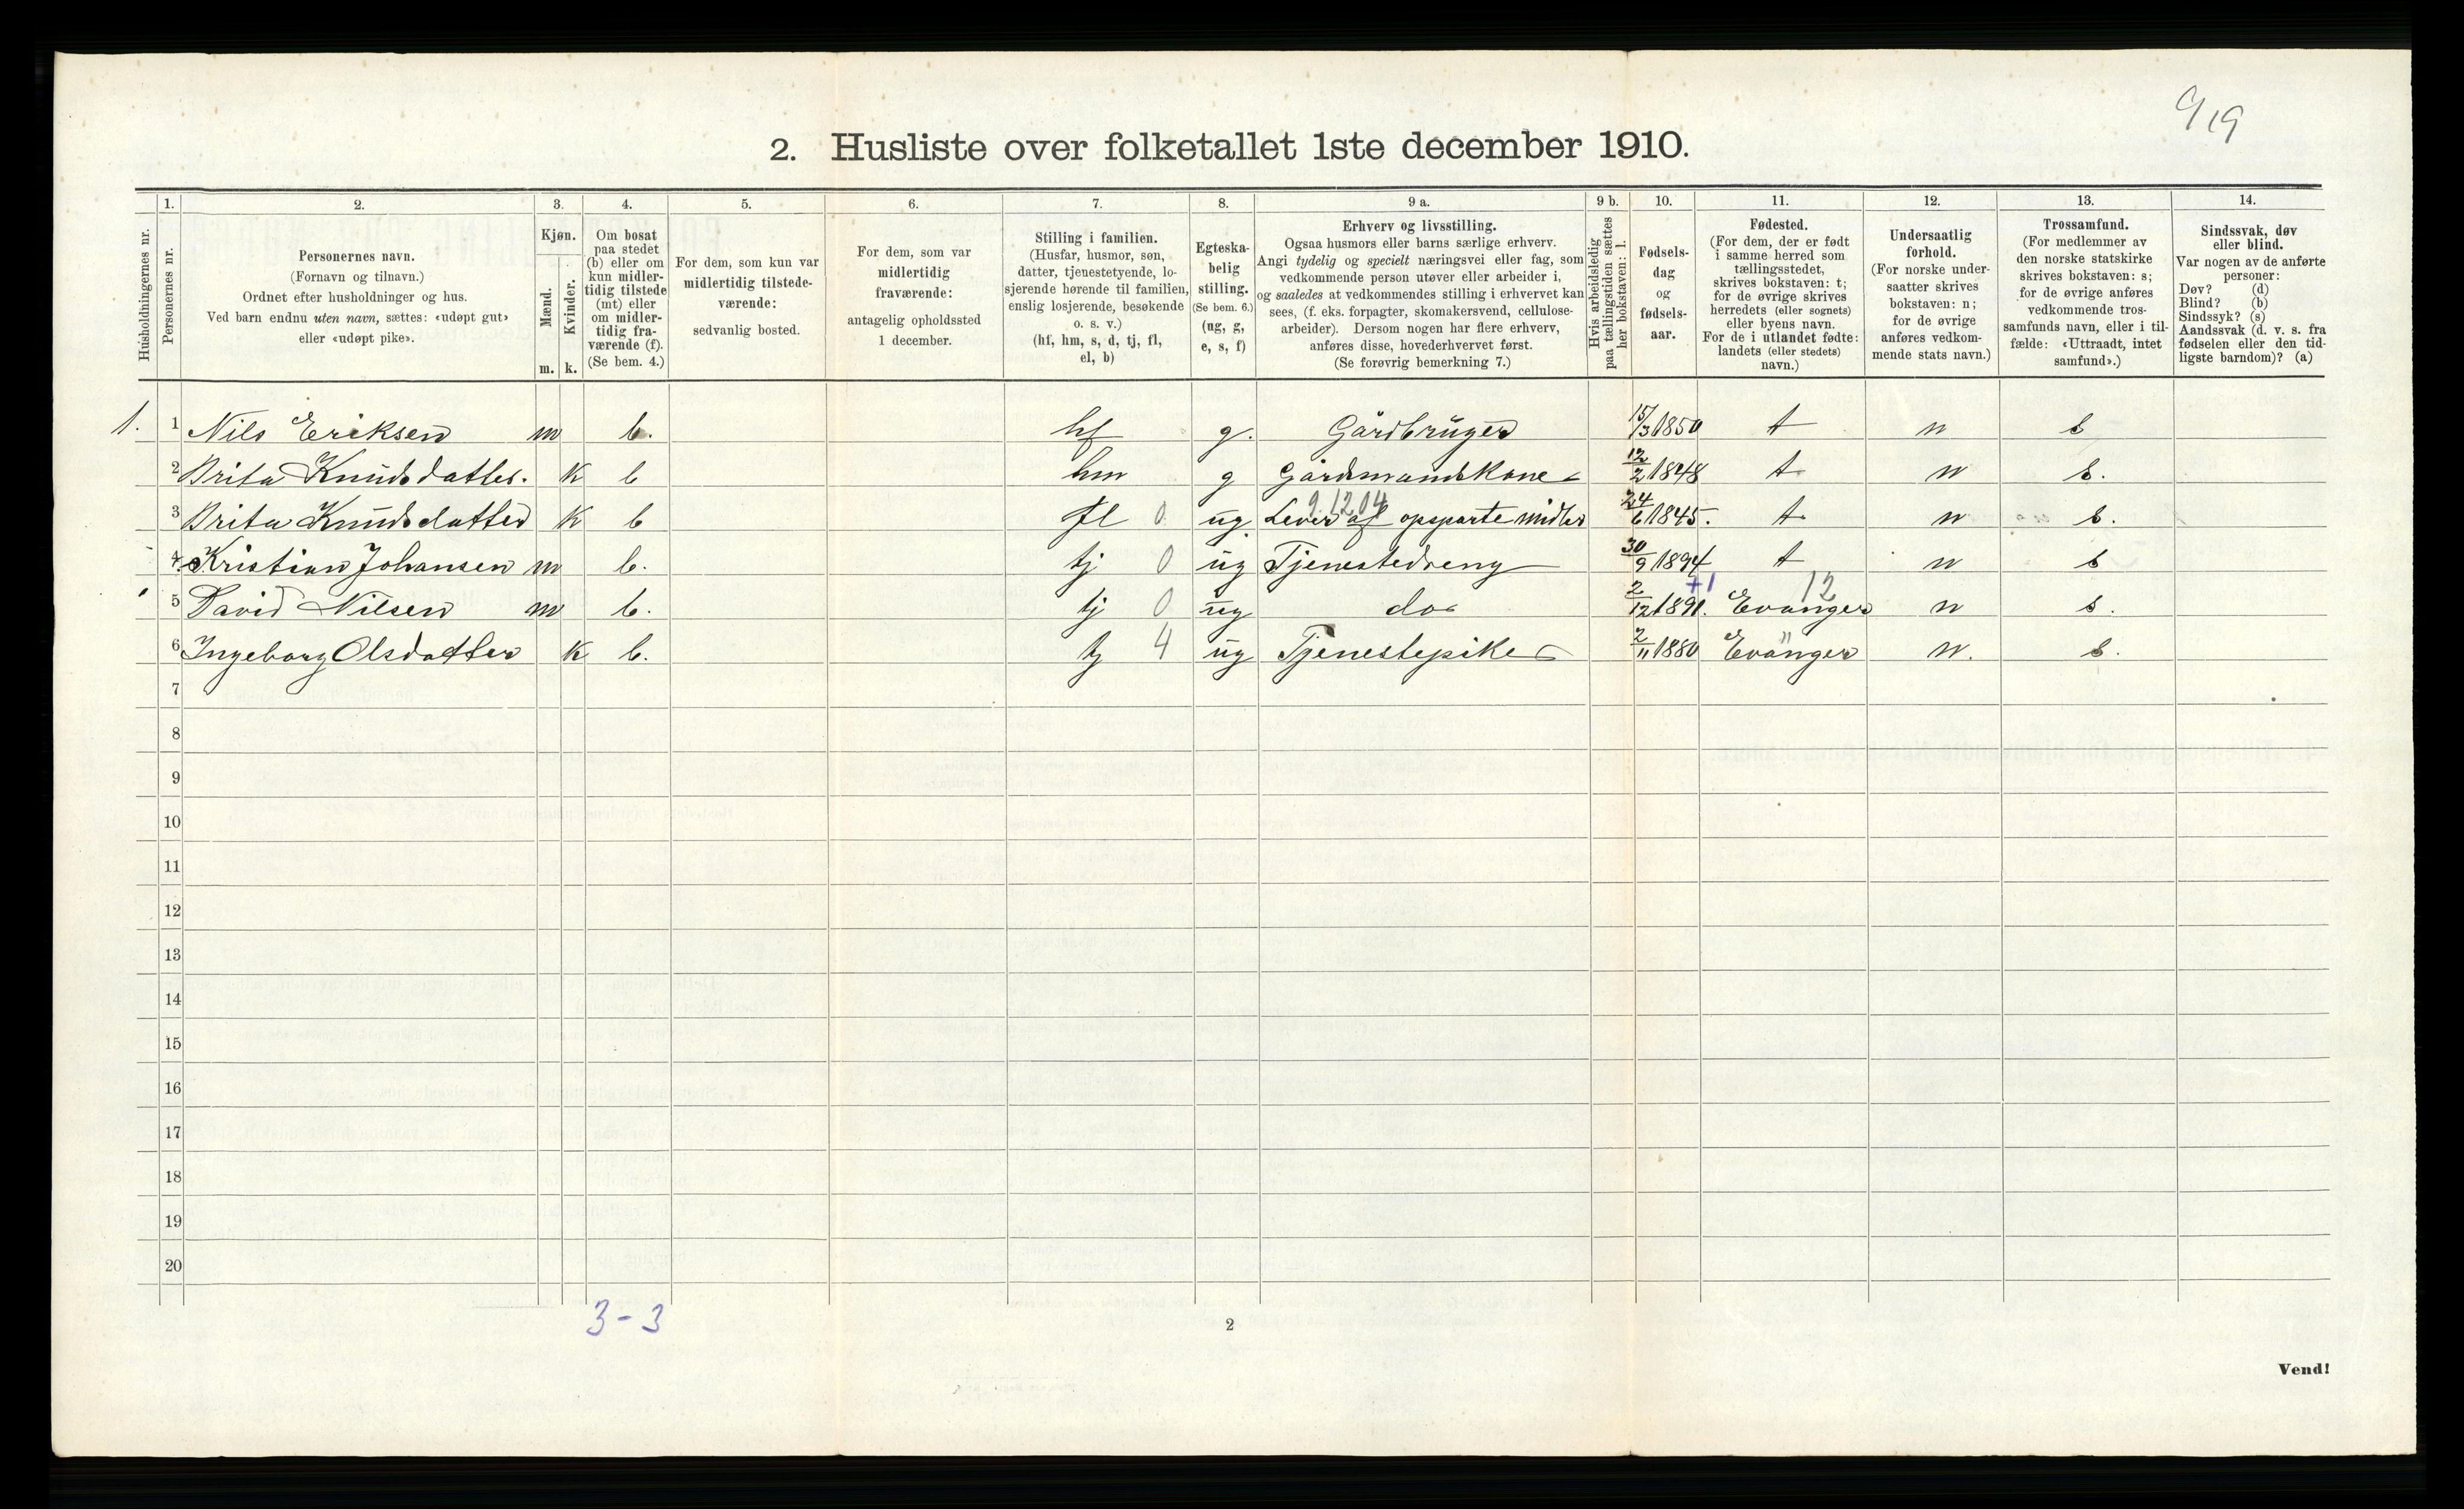 9/19
2. Husliste over folketallet 1ste december 1910.
Husholdningernes nr.
1. Personernes nr.
2. Personernes navn.
(Fornavn og tilnavn.)
Ordnet efter husholdninger og hus.
Ved barn endnu uten navn, sættes: «udøpt gut»
eller «udøpt pike».
3. Kjøn.
Mænd. Kvinder.
m. k.
4. Om bosat
paa stedet
(b) eller om
kun midler-
tidig tilstede
(mt) eller
om midler-
tidig fra-
værende (f).
(Se bem. 4.)
5. For dem, som kun var
midlertidig tilstede-
værende:
sedvanlig bosted.
6. For dem, som var
midlertidig
fraværende:
antagelig opholdssted
1 december.
7. Stilling i familien.
(Husfar, husmor, søn,
datter, tjenestetyende, lo-
sjerende hørende til familien,
enslig losjerende, besøkende
o. s. v.)
(hf, hm, s, d, tj, fl,
el, b)
8. Egteska-
belig
stilling.
(Se bem. 6.)
(ug, g,
e, s, f)
9 a. Erhverv og livsstilling.
Ogsaa husmors eller barns særlige erhverv.
Angi tydelig og specielt næringsvei eller fag, som
vedkommende person utøver eller arbeider i,
og saaledes at vedkommendes stilling i erhvervet kan
sees, (f. eks. forpagter, skomakersvend, cellulose-
arbeider). Dersom nogen har flere erhverv,
anføres disse, hovederhvervet først.
(Se forøvrig bemerkning 7.)
9 b. Hvis arbeidsledig
paa tællingstiden sættes
her bokstaven: l.
10. Fødsels-
dag
og
fødsels-
aar.
11. Fødested.
(For dem, der er født
i samme herred som
tællingsstedet,
skrives bokstaven: t;
for de øvrige skrives
herredets (eller sognets)
eller byens navn.
For de i utlandet fødte:
landets (eller stedets)
navn.)
12. Undersaatlig
forhold.
(For norske under-
saatter skrives
bokstaven: n;
for de øvrige
anføres vedkom-
mende stats navn.)
13. Trossamfund.
(For medlemmer av
den norske statskirke
skrives bokstaven: s;
for de øvrige anføres
vedkommende tros-
samfunds navn, eller i til-
fælde: «Uttraadt, intet
samfund».)
14. Sindssvak, døv
eller blind.
Var nogen av de anførte
personer:
Døv? (d)
Blind? (b)
Sindssyk? (s)
Aandssvak (d. v. s. fra
fødselen eller den tid-
ligste barndom)? (a)
1. 1 Nils Eriksen m b. hf g. Gårdbruger 15/3 1850 t n s
2 Brita Knudsdatter. k b hm g Gårdmandskone 12/2 1848 t n s.
9.1204
3 Brita Knudsdatter k b fl 0 ug. Lever af opsparte midler 24/6 1845. t n s.
4 Kristian Johansen m b. tj 0 ug Tjenestedreng 30/9 1894 t n s
+1 12
5 David Nilsen m b. tj 0 ug do 2/12 1891. Evanger n s.
"
6 Ingeborg Olsdatter k b. tj 4 ug Tjenestepike 2/11 1880 Evanger n. s.
7
8
9
10
11
12
13
14
15
16
17
18
19
20
3-3
2
Vend!